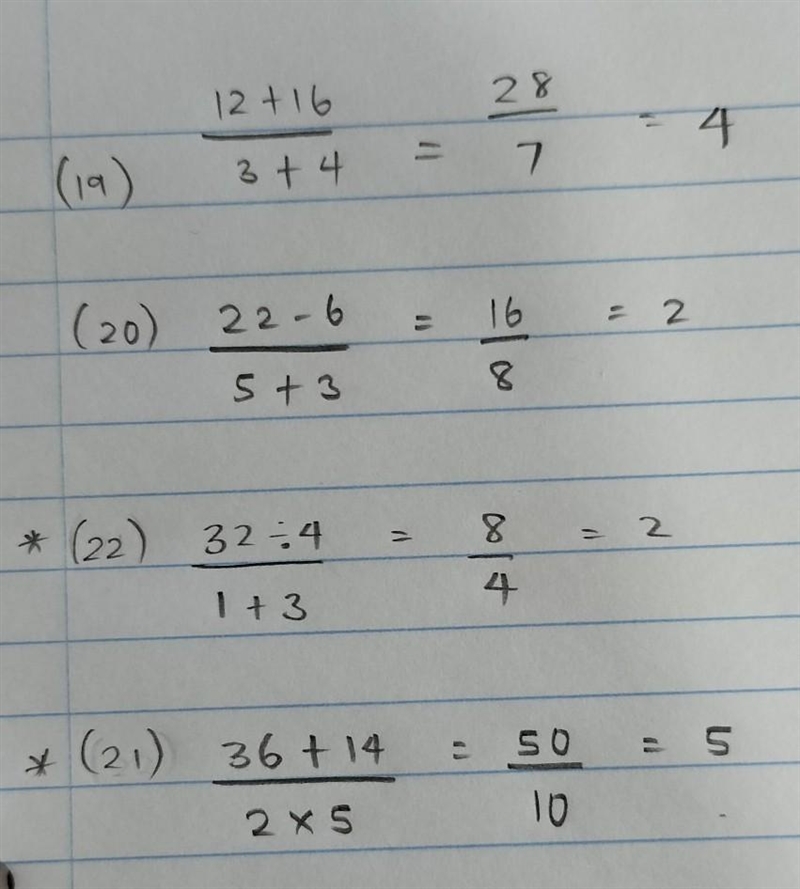 (19) 12 + 16 / 3 + 4 = 28 / 7 = 4
(20) 22 - 6 / 5 + 3 = 16 / 8 = 2
* (22) 32 ÷ 4 / 1 + 3 = 8 / 4 = 2
* (21) 36 + 14 / 2 × 5 = 50 / 10 = 5